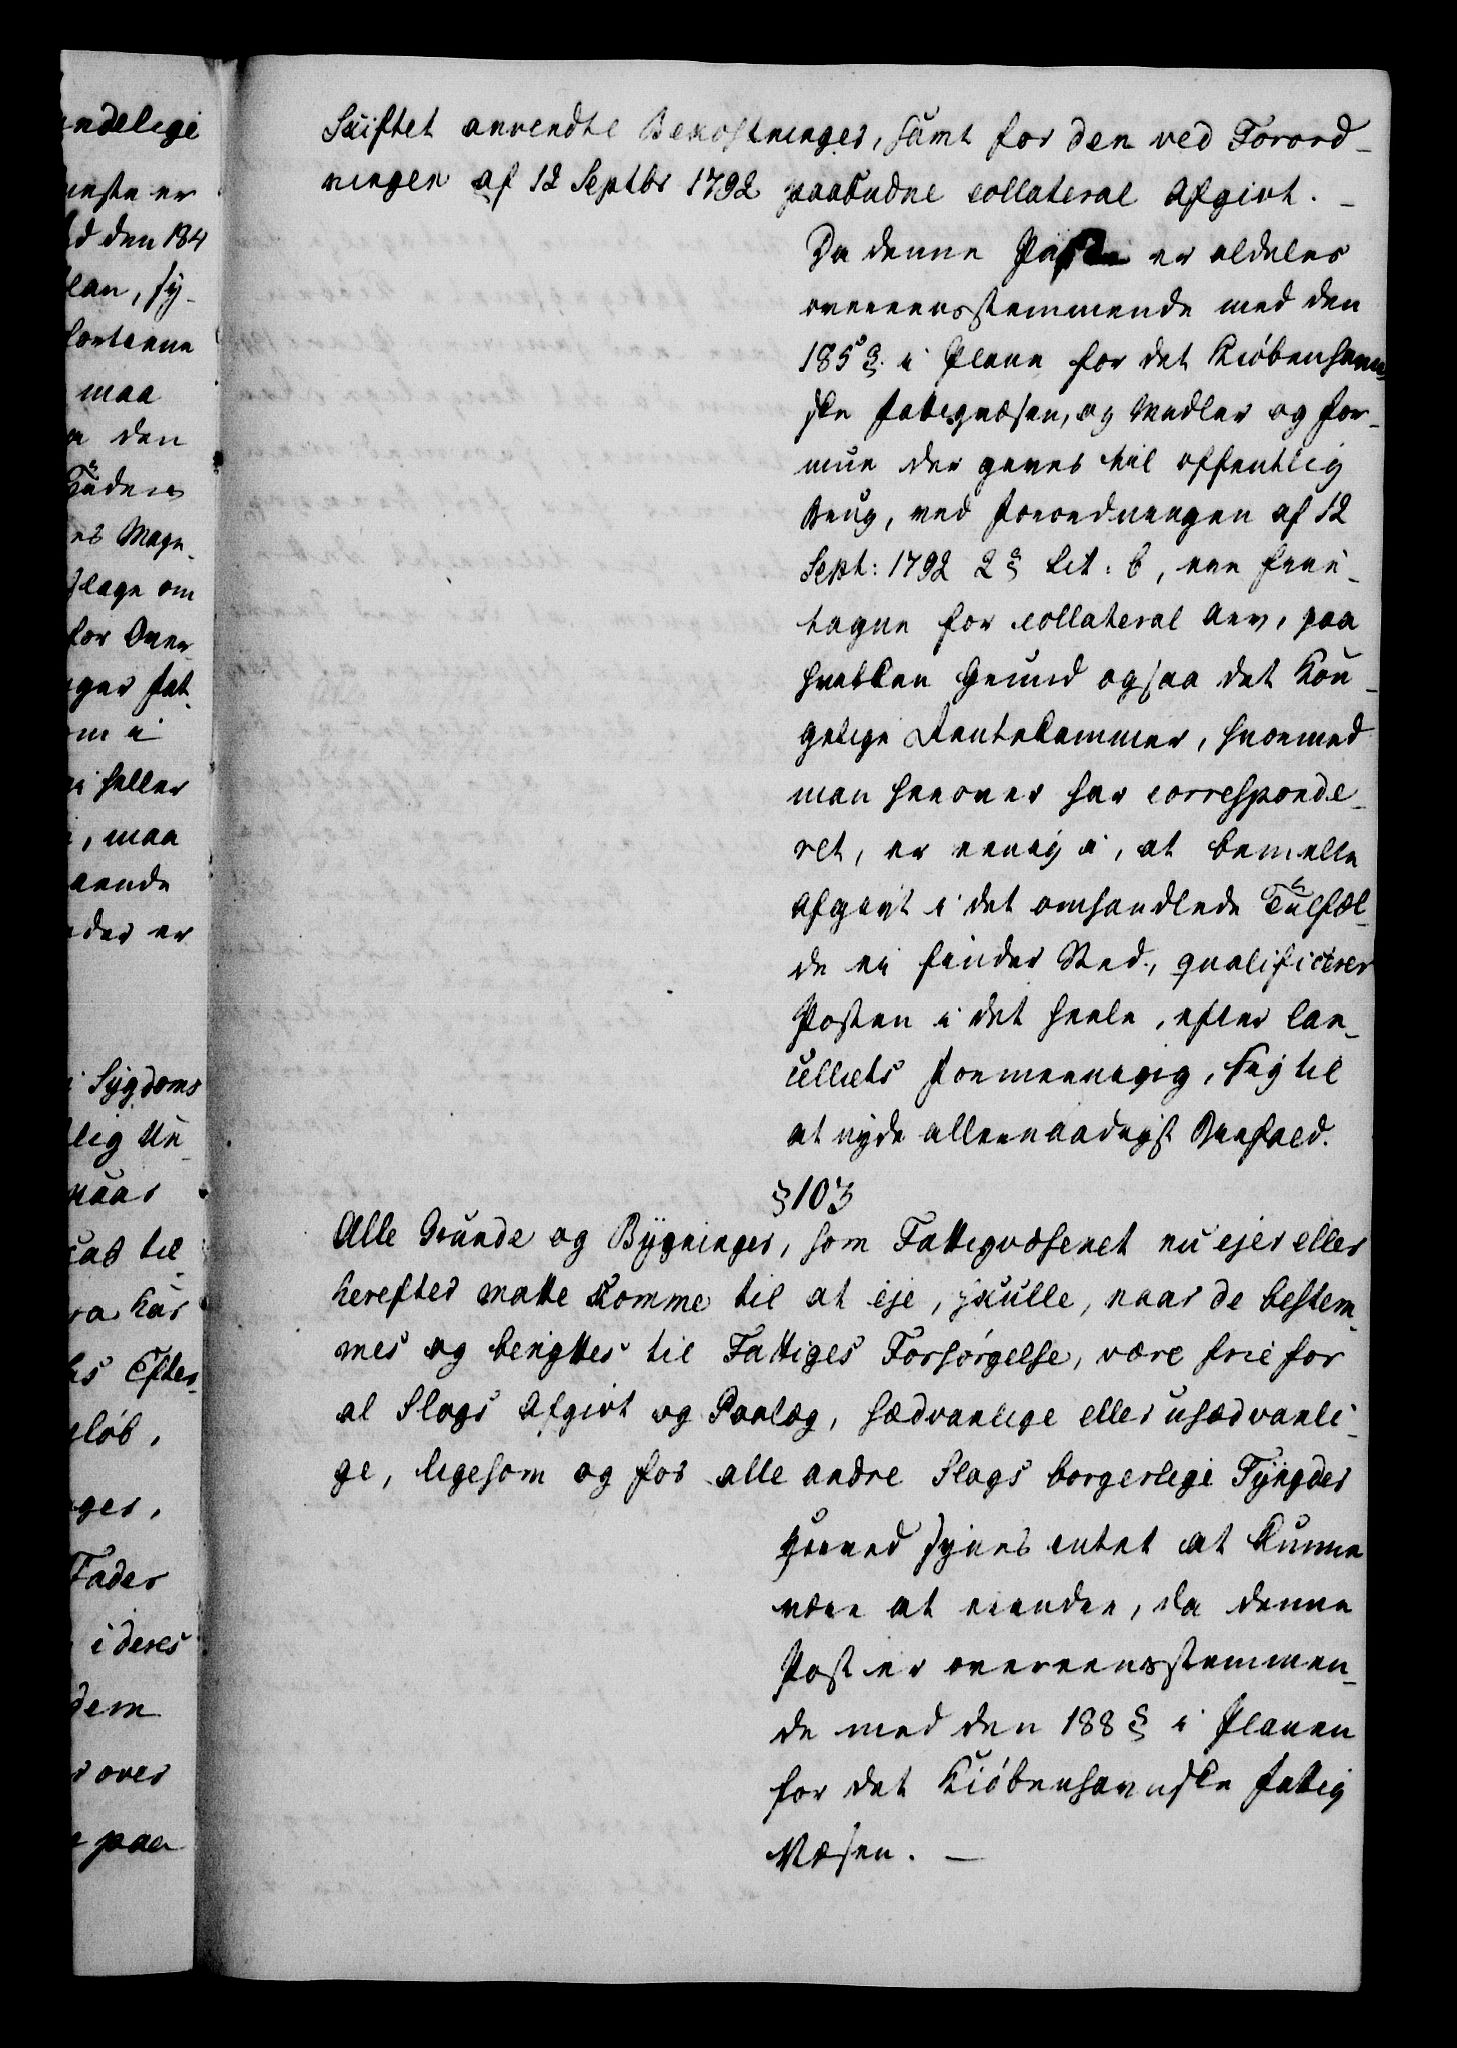 Skiftet anvendte Bekostninger, samt for den ved Forord-
ningen af 12 Septbr 1792 paabudne collateral Afgivt. -
Da denne Post er aldeles
overeensstemmende med den
185 § i Planen for det Kiöbenhavn-
ske Fattigvæsen, og Midler og For-
mue der gives til offentlig
Brug, ved Forordningen af 12
Sept: 1792 2 § Lit: b, ere frie-
tagne for collateral Arv, paa
hvilken Grund ogsaa det Kon-
gelige Rentekammer, hvormed
man herover har corresponde-
ret, er eenig i, at bemelte
Afgivt i det omhandlede Tilfæl-
de ei finder Sted, qualificerer
Posten i det heele, efter Can-
celliets Formeening, sig til
at nyde allernaadigst Bifald.
§ 103
Alle Grunde og Bygninger, som Fattigvæsenet nu ejer eller
herefter maatte komme til at eje, skulle, naar de bestem-
mes og benyttes til Fattiges Forsörgelse, være frie for
al Slags Afgivt og Paalæg, sædvanlige eller usædvanli-
ge, ligesom og for alle andre Slags borgerlige Tyngder
Herved synes intet at kunne
være at erindre, da denne
Post er overeensstemmen-
de med den 188 § i Planen
for det Kiöbenhavnske Fattig
Væsen. -